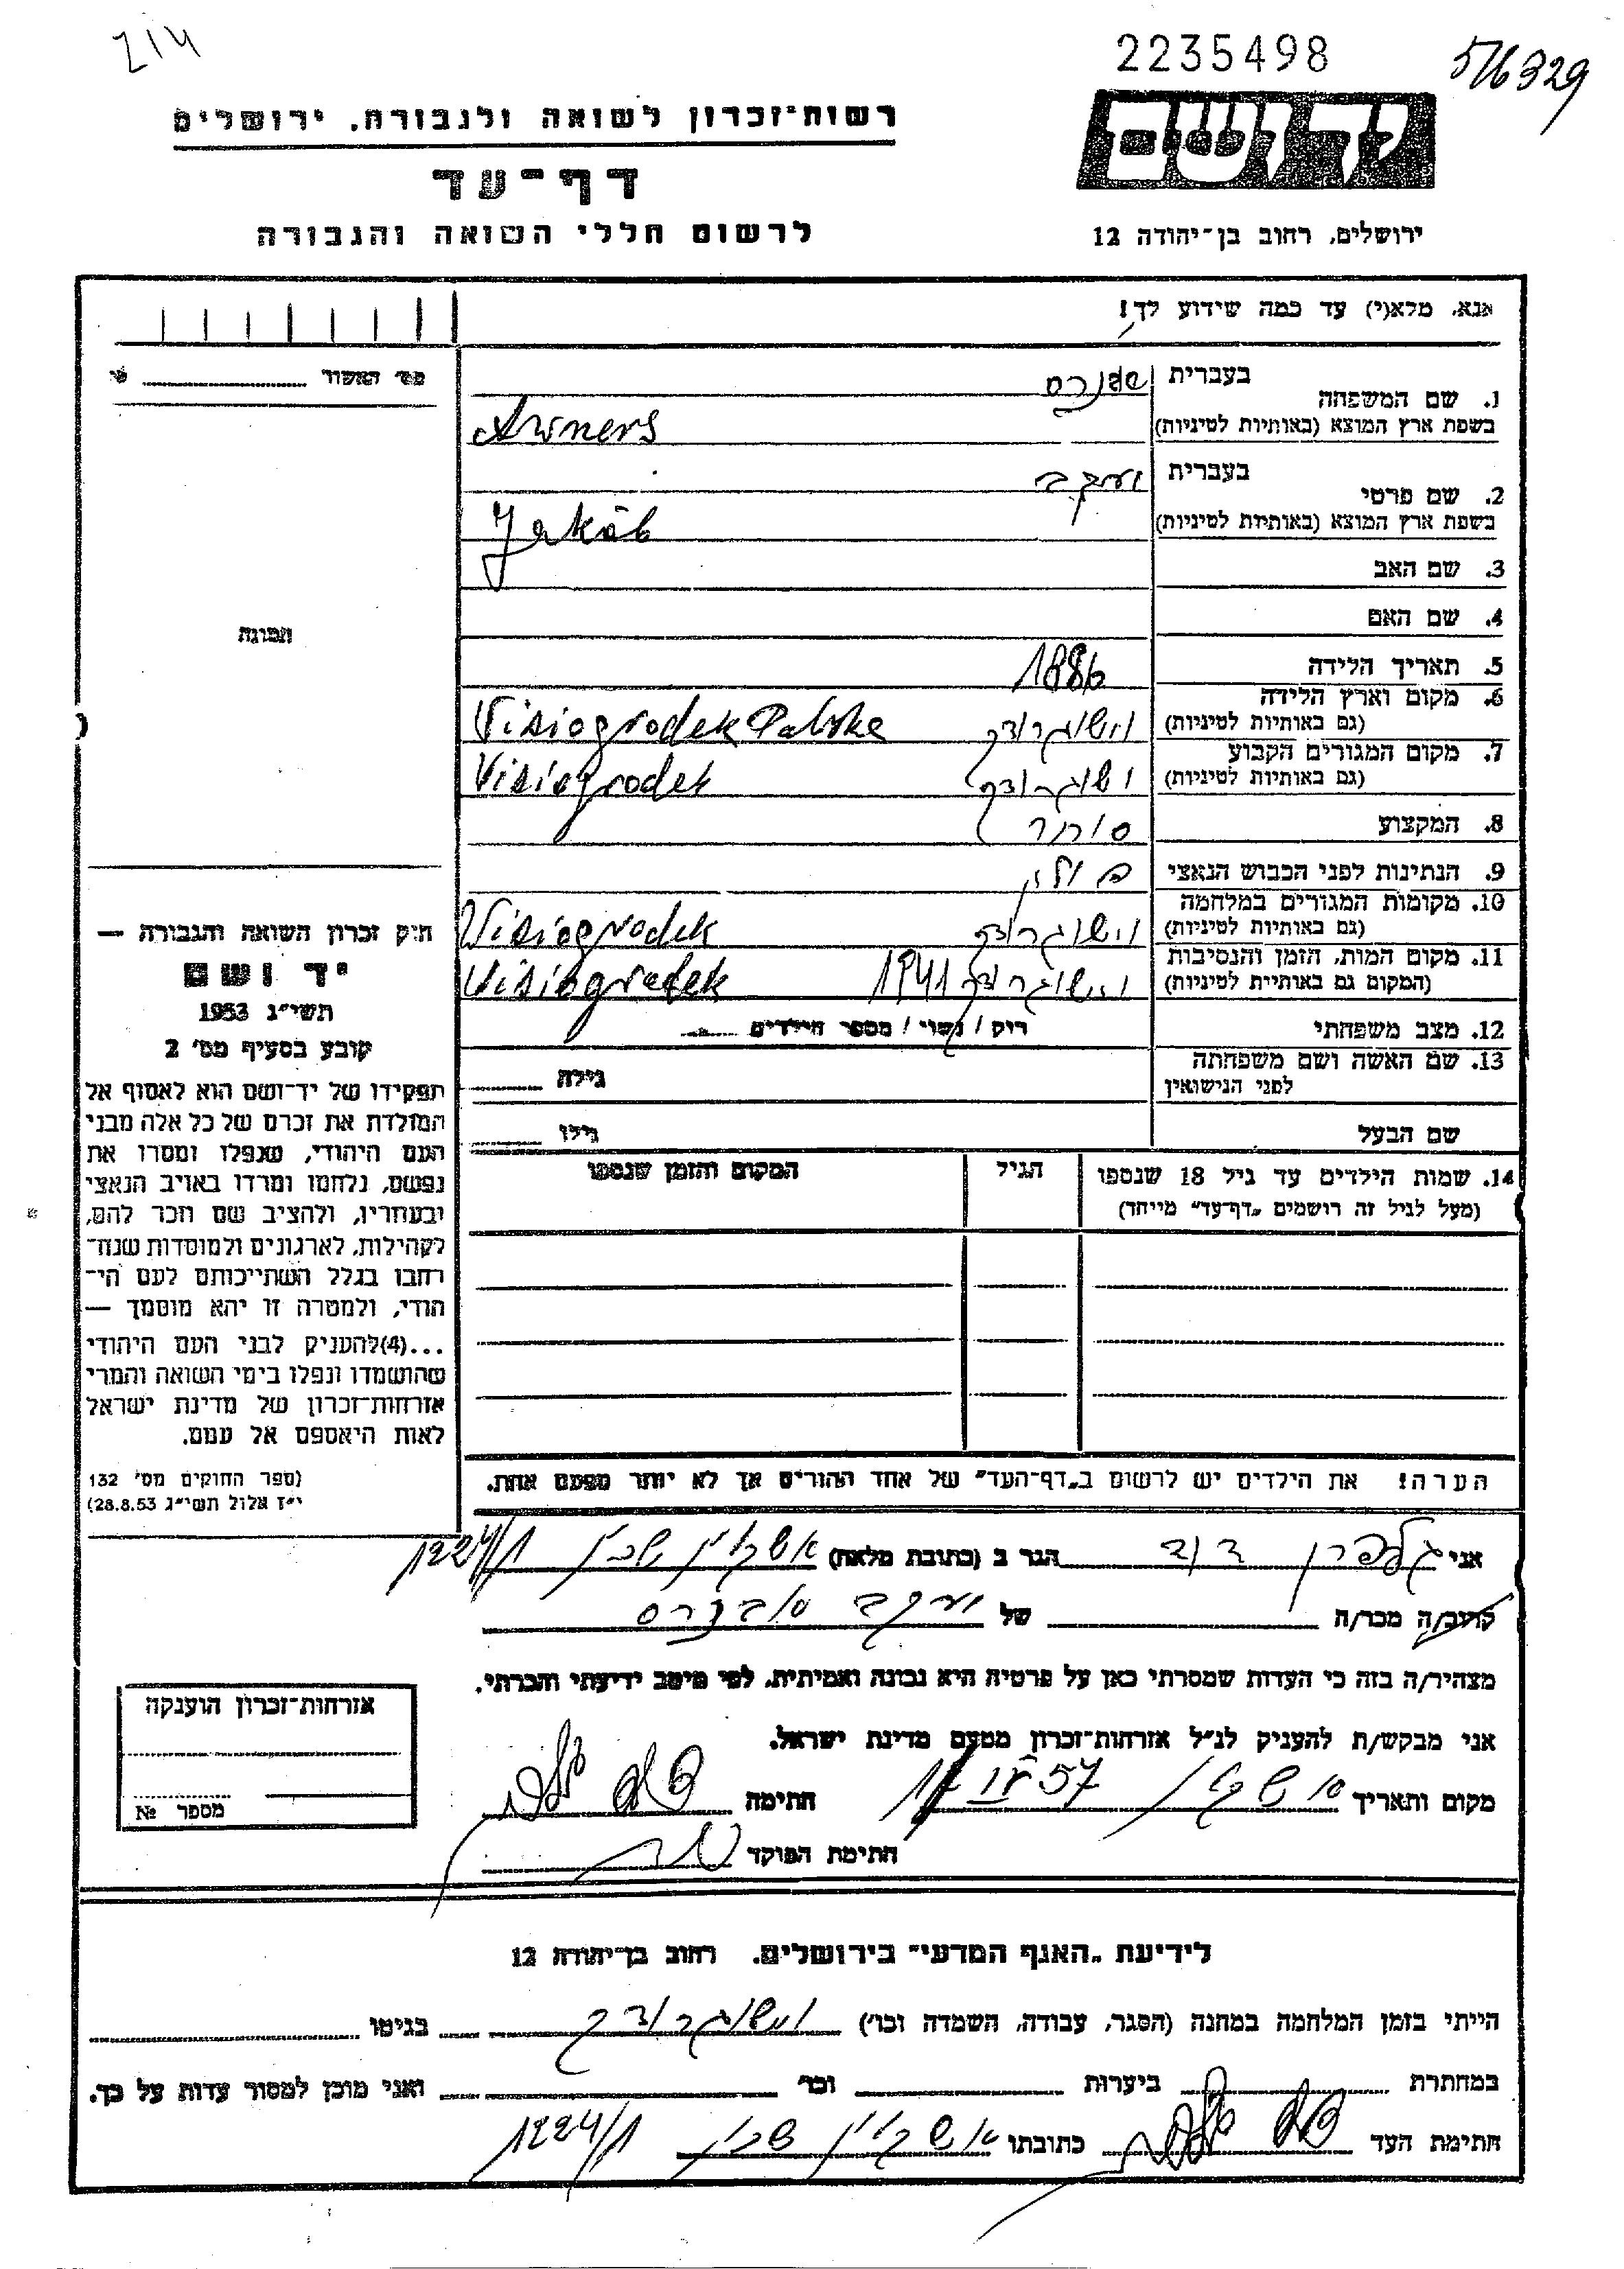 214
2235498
516329
רשות־זכרון לשואה ולגבורה, ירושלים
דף־עד
לרשום חללי השואה והגבורה
יד ושם
ירושלים, רחוב בן־יהודה 12
אנא, מלא(י) עד כמה שידוע לך!
מס׳ האשור
1. שם המשפחה
בעברית
בשפת ארץ המוצא (באותיות לטיניות)
Awners
2. שם פרטי
בעברית יעקב
בשפת ארץ המוצא (באותיות לטיניות)
Jakób
3. שם האב
4. שם האם
תמונה
5. תאריך הלידה 1886
6. מקום וארץ הלידה
(גם באותיות לטיניות) וישוגרודק Visiogrodek Polska
7. מקום המגורים הקבוע
(גם באותיות לטיניות) וישוגרודק Visiogrodek
8. המקצוע סוחר
9. הנתינות לפני הכבוש הנאצי פולין
10. מקומות המגורים במלחמה
(גם באותיות לטיניות) וישוגרודק Visiogrodek
11. מקום המות, הזמן והנסיבות
(המקום גם באותיות לטיניות) וישוגרודק 1941 Visiogrodek
12. מצב משפחתי רוק / נשוי / מספר הילדים
13. שם האשה ושם משפחתה
לפני הנישואין גילה
שם הבעל גילו
14. שמות הילדים עד גיל 18 שנספו
(מעל לגיל זה רושמים „דף־עד״ מיוחד)
הגיל
המקום והזמן שנספו
הערה! את הילדים יש לרשום ב„דף־העד״ של אחד ההורים אך לא יותר מפעם אחת.
חוק זכרון השואה והגבורה —
יד ושם
תשי״ג 1953
קובע בסעיף מס׳ 2
תפקידו של יד־ושם הוא לאסוף אל
המולדת את זכרם של כל אלה מבני
העם היהודי, שנפלו ומסרו את
נפשם, נלחמו ומרדו באויב הנאצי
ובעוזריו, ולהציב שם וזכר להם,
לקהילות, לארגונים ולמוסדות שנח־
רבו בגלל השתייכותם לעם הי־
הודי, ולמטרה זו יהא מוסמך —
...(4)להעניק לבני העם היהודי
שהושמדו ונפלו בימי השואה והמרי
אזרחות־זכרון של מדינת ישראל
לאות היאספם אל עמם.
(ספר החוקים מס׳ 132
י״ז אלול תשי״ג 28.8.53)
אני גלפרן דוד הגר ב (כתובת מלאה) אשקלון שכון 1224/1
קרוב/ה מכר/ה של יעקב
מצהיר/ה בזה כי העדות שמסרתי כאן על פרטיה היא נכונה ואמיתית, לפי מיטב ידיעתי והכרתי.
אני מבקש/ת להעניק לנ״ל אזרחות־זכרון מטעם מדינת ישראל.
מקום ותאריך אשקלון 57 חתימה
חתימת הפוקד
אזרחות־זכרון הוענקה
מספר №
לידיעת „האגף המדעי״ בירושלים. רחוב בן־יהודה 12
הייתי בזמן המלחמה במחנה (הסגר, עבודה, השמדה וכו׳) וישוגרודק בגיטו
במחתרת ביערות וכו׳ ואני מוכן למסור עדות על כך.
חתימת העד כתובתו אשקלון שכון 1224/1